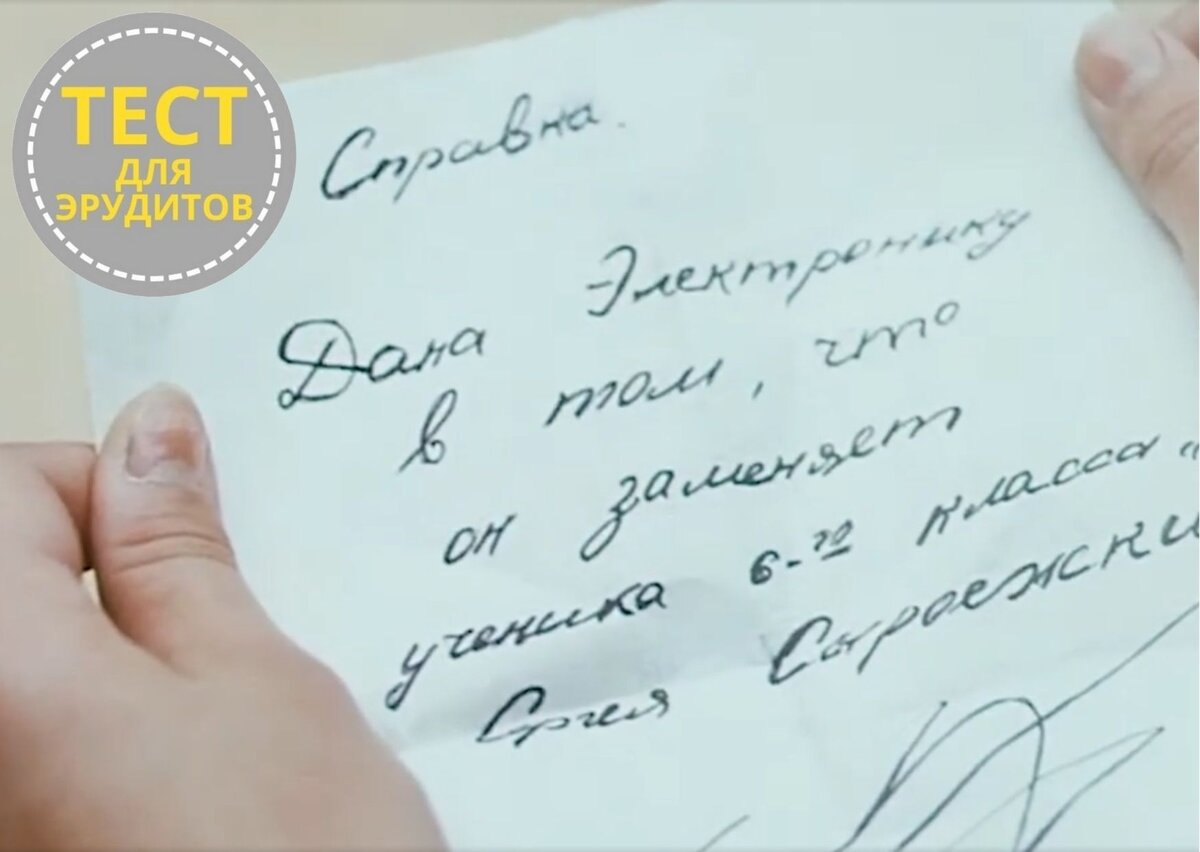 ТЕСТ
ДЛЯ
ЭРУДИТОВ
Справка.
Дана Электронику
в том, что
он заменяет
ученика 6-го класса „
Сергея Сыроежки